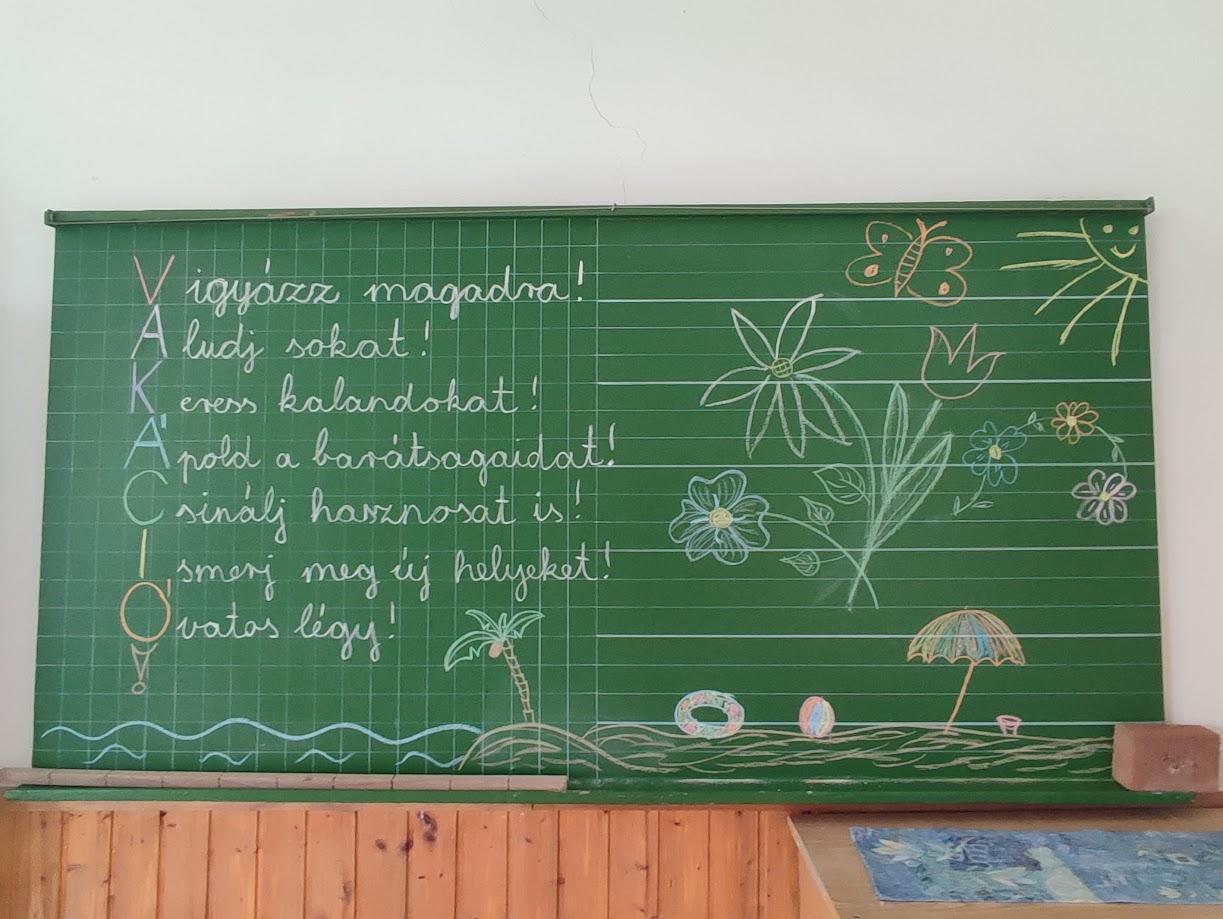 Vigyázz magadra!
Aludj sokat!
Keress kalandokat!
Ápold a barátsagaidat!
Csinálj hasznosat is!
Ismerj meg új helyeket!
Óvatos légy!
!